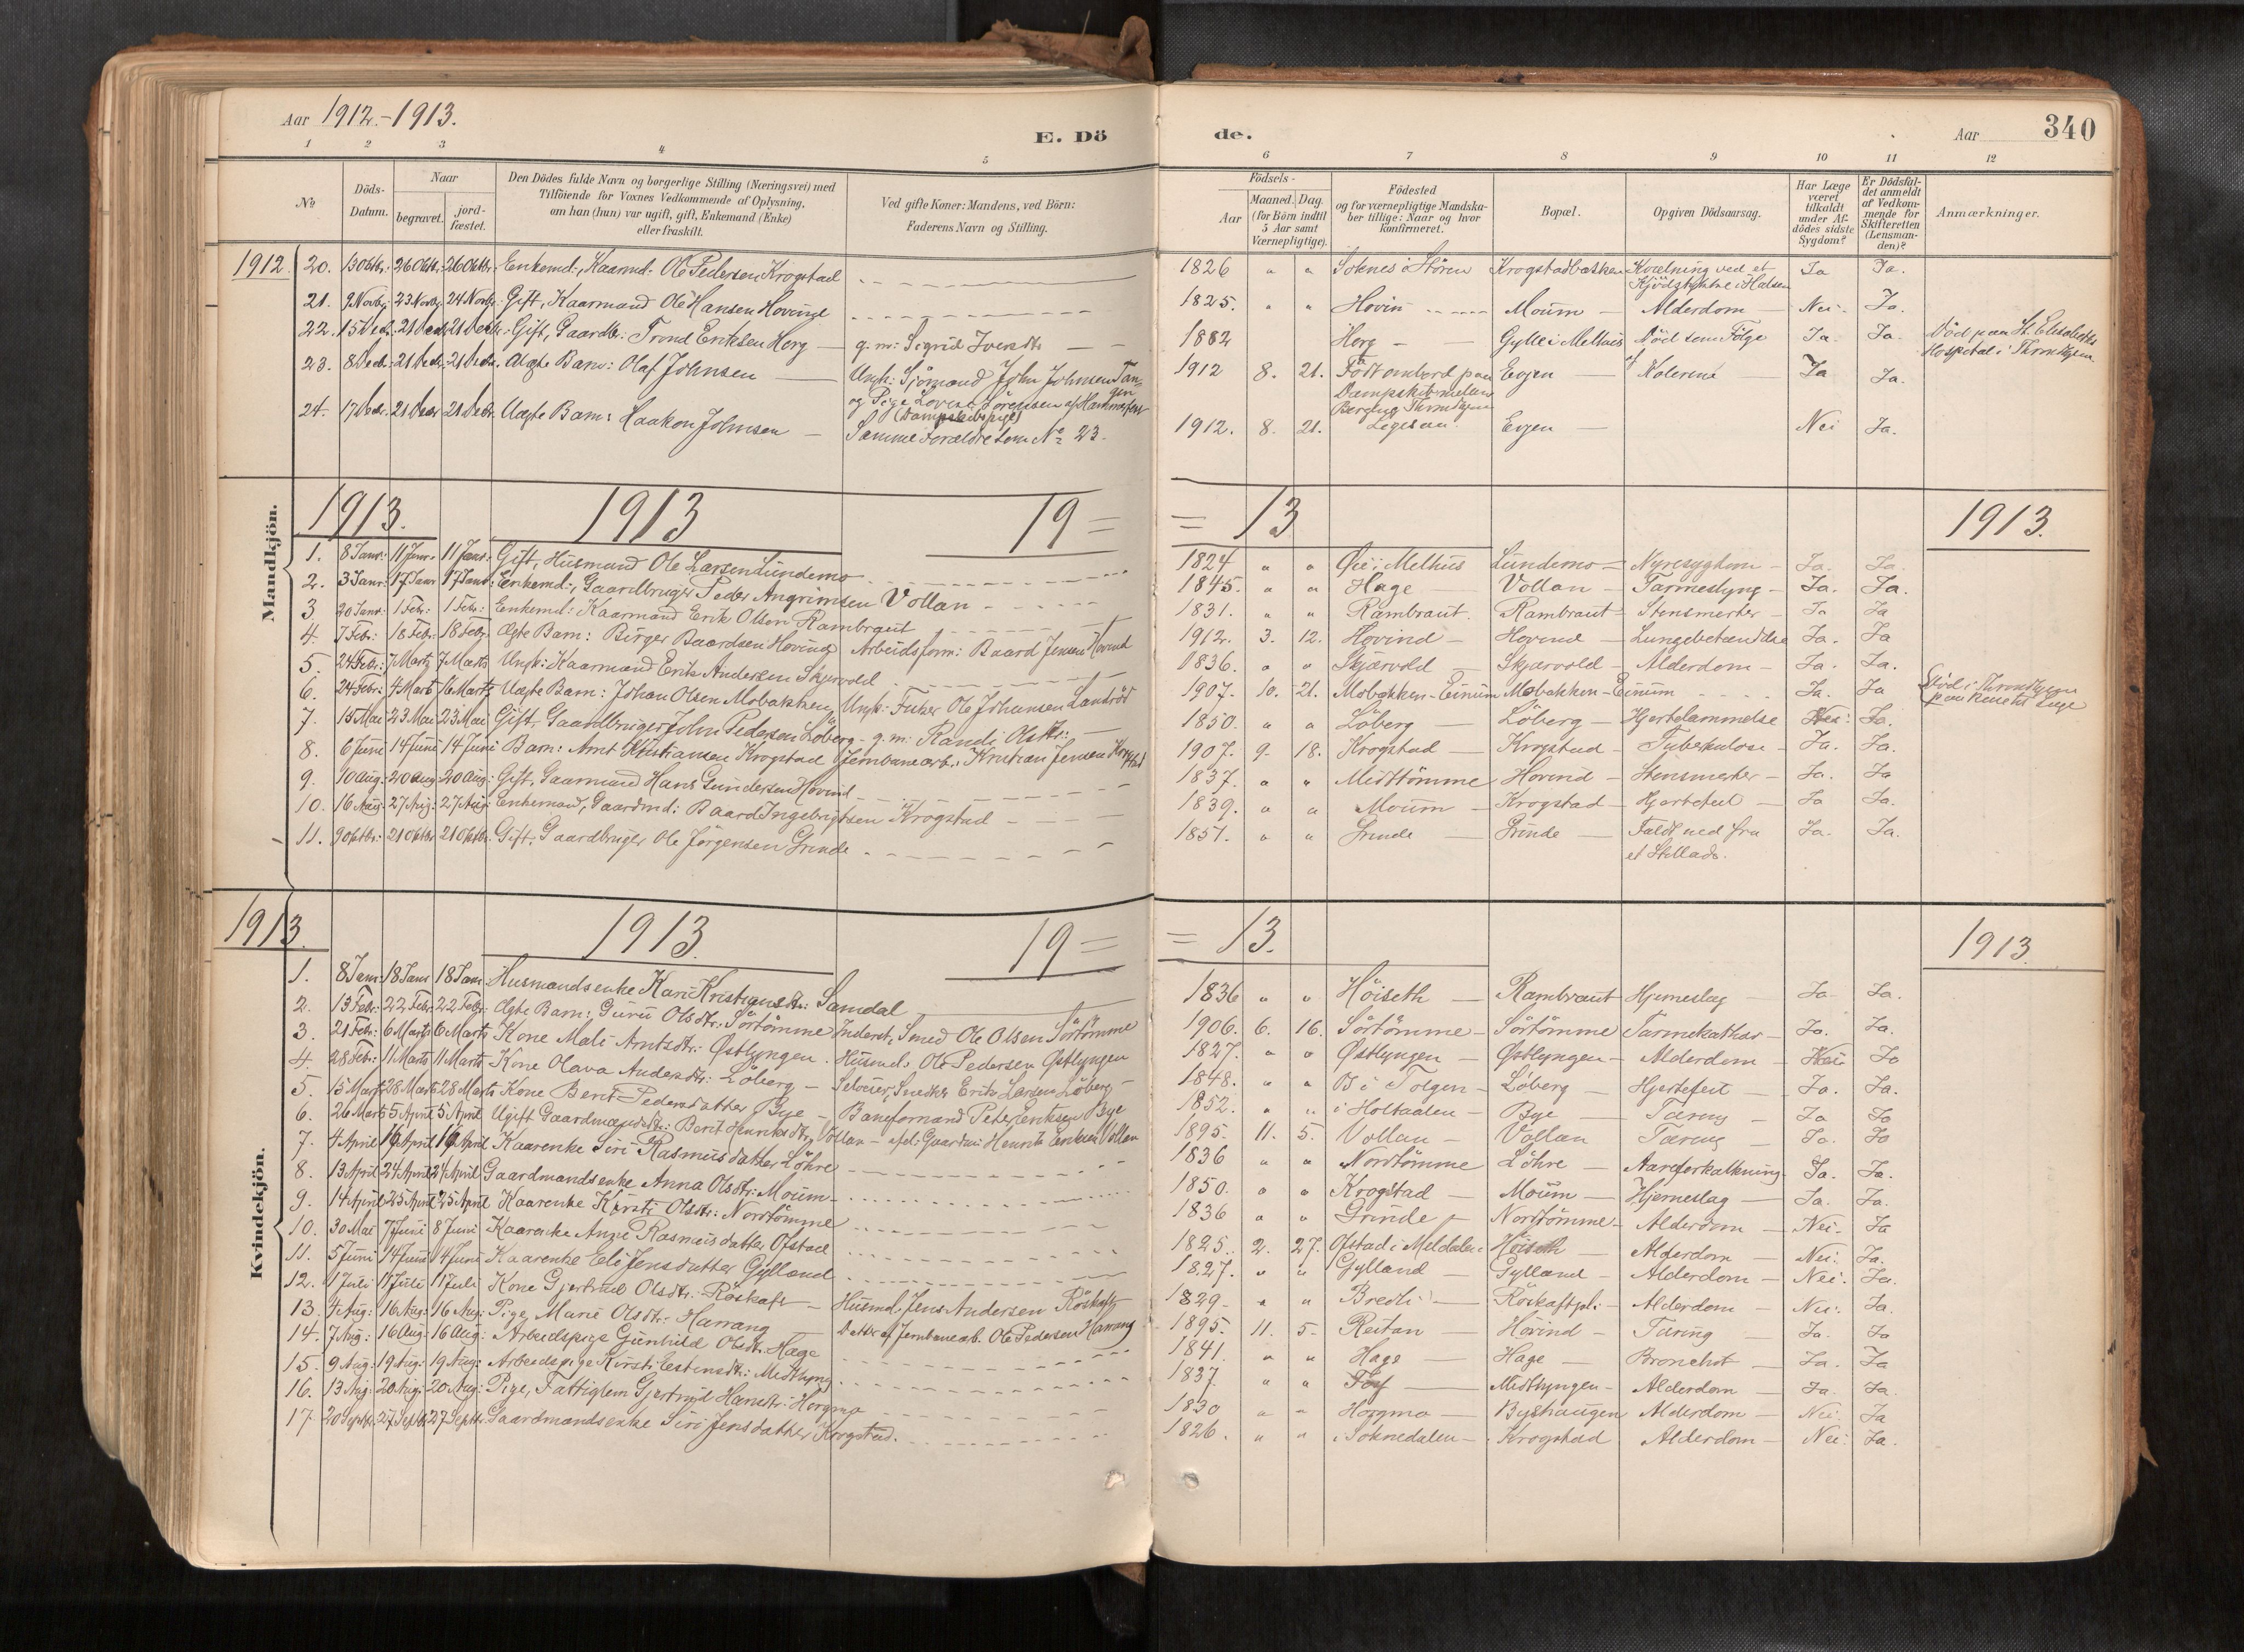 Aar 1912.-1913.
E. Dö
de.
Aar 340
1 2 3 4 5
6 7 8 9 10 11 12
No
Döds-
Datum.
Naar
begravet.
jord-
fæstet.
Den Dödes fulde Navn og borgerlige Stilling (Næringsvei) med
Tilföiende for Voxnes Vedkommende af Oplysning,
om han (hun) var ugift, gift, Enkemand (Enke)
eller fraskilt.
Ved gifte Koner: Mandens, ved Börn:
Faderens Navn og Stilling.
Födsels-
Aar
Maaned. Dag.
(for Börn indtil
5 Aar samt
Værnepligtige).
Födested
og for værnepligtige Mandska-
ber tillige: Naar og hvor
konfirmeret.
Bopæl.
Opgiven Dödsaarsag.
Har Læge
været
tilkaldt
under Af-
dödes sidste
Sygdom?
Er Dödsfal-
det anmeldt
af Vedkom-
mende for
Skifteretten
(Lensman-
den)?
Anmærkninger.
Mandkjön.
1912. 20. 13 Oktbr: 26 Oktbr: 26 Oktbr: Enkemd:, Kaarmd: Ole Pedersen Krogstad 1826 " " Soknes i Stören Krogstadbakken Kvælning ved et Kjödstykke i Halsen Ja Ja.
21. 9 Novbr: 23 Novbr: 24 Novbr: Gift, Kaarmand Ole Hansen Hovind 1825. " " Hovin Moum Alderdom Nei. Ja.
22. 15 Decb: 21 Decb: 21 Decbr: Gift, Gaardbr: Trond Eriksen Horg g. m: Sigrid Iversdtr 1882 Horg Gylle i Melhus Död som Fölge Ja. Ja. Död paa St. Elisabeths
Hospital i Throndhjem
23. 8 Decbr: 21 Decbr: 21 Decbr: Uægte Barn: Olaf Johnsen Ungk: Sjömand John Johnsen Tangen 1912 8. 21. Födt ombord paa Evjen af Kolerine Ja Ja.
og Pige Lovise Sörensen af Hammerfest
(Dampskibspige)
Dampskib mellem
Bergen og Throndhjem
24. 17 Decbr. 21 Decbr 21 Decbr. Uægte Barn: Haakon Johnsen Samme Forældre som No 23. 1912. 8. 21. Ligesaa. Evjen Nei Ja.
1913. 1913 19 = = 13 1913.
1. 8 Janr: 11 Janr. 11 Janr: Gift, Husmand Ole Larsen Lundemo 1824 " " Øie i Melhus Lundemo Nyresygdom Ja. Ja.
2. 3 Janr: 17 Janr 17 Janr: Enkemd:, Gaardbruger Peder Angrimsen Vollan 1845. " " Hage Vollan Tarmeslyng Ja. Ja.
3 20 Janr: 1 Febr: 1 Febr: Enkemd: Kaarmand Erik Olsen Rambraut 1831. " " Rambraut. Rambraut Stensmerter Ja Ja
4. 7 Febr: 18 Febr: 18 Febr. Ægte Barn: Birger Baardsen Hovind Arbeidsform: Baard Jensen Hovind 1912. 3. 12. Hovind Hovind Lungebetændelse Ja. Ja
5. 24 Febr: 7 Marts 7 Marts Ungk: Kaarmand Erik Andersen Skjervold 1836. " " Skjærvold Skjærvold Alderdom Ja. Ja.
6. 24 Febr: 4 Marts 16 Marts Uægte Barn: Johan Olsen Mobakken Ungk: Fisker Ole Johansen Landröd 1907. 10. 21. Mobakken-Einum Mobakken-Einum Ja. Ja Död i Throndhjem
7. 15 Mai 23 Mai 23 Mai Gift, Gaardbruger John Pedersen Löberg g. m: Randi Olsdtr: 1850. " " Löberg Löberg Hjertelammelse Nei: Ja.
8. 6 Juni 14 Juni 14 Juni Barn: Arnt Kristiansen Krogstad Jernbanearb.: Kristian Jensen Krogstad 1907. 9. 18. Krogstad Krogstad Tuberkulose Ja. Ja.
9. 10 Aug: 20 Aug 20 Aug: Gift, Gaarmand Hans Gundersen Hovind 1837. " " Midttömme Hovind Stensmerter Ja. Ja
10. 16 Aug: 27 Aug: 27 Aug: Enkemand, Gaardmd: Baard Ingebrigtsen Krogstad 1839. " " Moum Krogstad Hjertefeil Ja Ja.
11. 9 Oktbr: 21 Oktbr 21 Oktbr: Gift, Gaardbruger Ole Jörgensen Grinde 1857. " " Grinde Grinde Faldt ned fra Ja. Ja.
et Stillads.
Kvindekjön.
1913. 1913. 19 = = 13. 1913.
1. 8 Janr: 18 Janr 18 Janr Husmandsenke Kari Kristiansdtr: Samdal 1836 " " Höiseth Rambraut Hjerneslag Ja Ja.
2. 13 Febr: 22 Febr: 22 Febr: Ægte Barn: Guru Olsdtr: Sörtömme Inderst, Smed Ole Olsen Sörtömme 1906. 6. 16. Sörtömme Sörtömme Tarmekathar Ja. Ja.
3. 21 Febr: 6 Marts 6 Marts Kone Mali Arntsdtr: Östlyngen Husmd: Ole Pedersen Östlyngen 1827. " " Östlyngen Östlyngen Alderdom Nei Ja
4. 28 Febr: 11 Marts 11 Marts Kone Olava Andersdtr: Löberg Selveier, Snedker Erik Larsen Löberg 1848. " " Os i Tolgen Löberg Hjertefeil Ja. Ja.
5. 15 Marts 28 Marts 28 Marts Kone Berit Pedersdatter Bye Baneformand Peder Eriksen Bye 1852. " " i Holtaalen Bye Tæring Ja Ja
6. 26 Marts 5 April 5 April Ugift Gaardmandsdtr: Berit Henriksdtr Vollan afd: Gaardmd: Henrik Eriksen Vollan 1895. 11. 5. Vollan Vollan Tæring Ja. Ja
7. 4 April 16 April 16 April Kaarenke Siri Rasmusdatter Löhre 1836 " " Nordtömme Löhre Aareforkalkning Ja. Ja.
8. 13 April 24 April 24 April Gaardmandsenke Anna Olsdtr: Moum 1850. " " Krogstad Moum Hjerneslag Ja. Ja.
9. 14 April 25 April 25 April Kaarenke Kirsti Olsdtr: Nordtömme 1836 " " Grinde Nordtömme Alderdom Nei. Ja
10. 30 Mai 7 Juni 8 Juni Kaarenke Anne Rasmusdatter Ofstad 1825. 2. 27. Ofstad i Meldalen Höiseth Alderdom Nei: Ja.
11. 5 Juni 14 Juni 14 Juni Kaarenke Eli Jensdatter Gylland 1827. " " Gylland Gylland Alderdom Nei. Ja.
12. 1 Juli 11 Juli 11 Juli Kone Gjertrud Olsdtr: Röskaft Husmd. Jens Andersen Röskaft 1829 " " Bredli Röskaftpl: Alderdom Nei: Ja.
13. 4 Aug: 16 Aug: 16 Aug: Pige Marie Olsdtr: Harrang Datter af Jernbanearb. Ole Pedersen Harrang 1895. 11. 5. Reitan Hovind Tæring Ja. Ja
14. 7 Aug: 16 Aug: 16 Aug: Arbeidspige Gunhild Olsdtr. Hage 1841 " " Hage Hage Bronchit Ja. Ja
15. 9 Aug: 19 Aug: 19 Aug: Arbeidspige Kirsti Estensdtr: Midtlyng 1837 " " Midtlyngen Alderdom Ja. Ja.
16. 13 Aug: 20 Aug: 20 Aug: Pige, Fattiglem Gjertrud Hansdtr: Horgmo 1830 " " Horgmo Byshaugen Alderdom Nei: Ja
17. 20 Septbr. 27 Septbr 27 Septbr: Gaardmandsenke Siri Jensdatter Krogstad. 1826. " " i Soknedalen Krogstad Alderdom Nei: Ja.